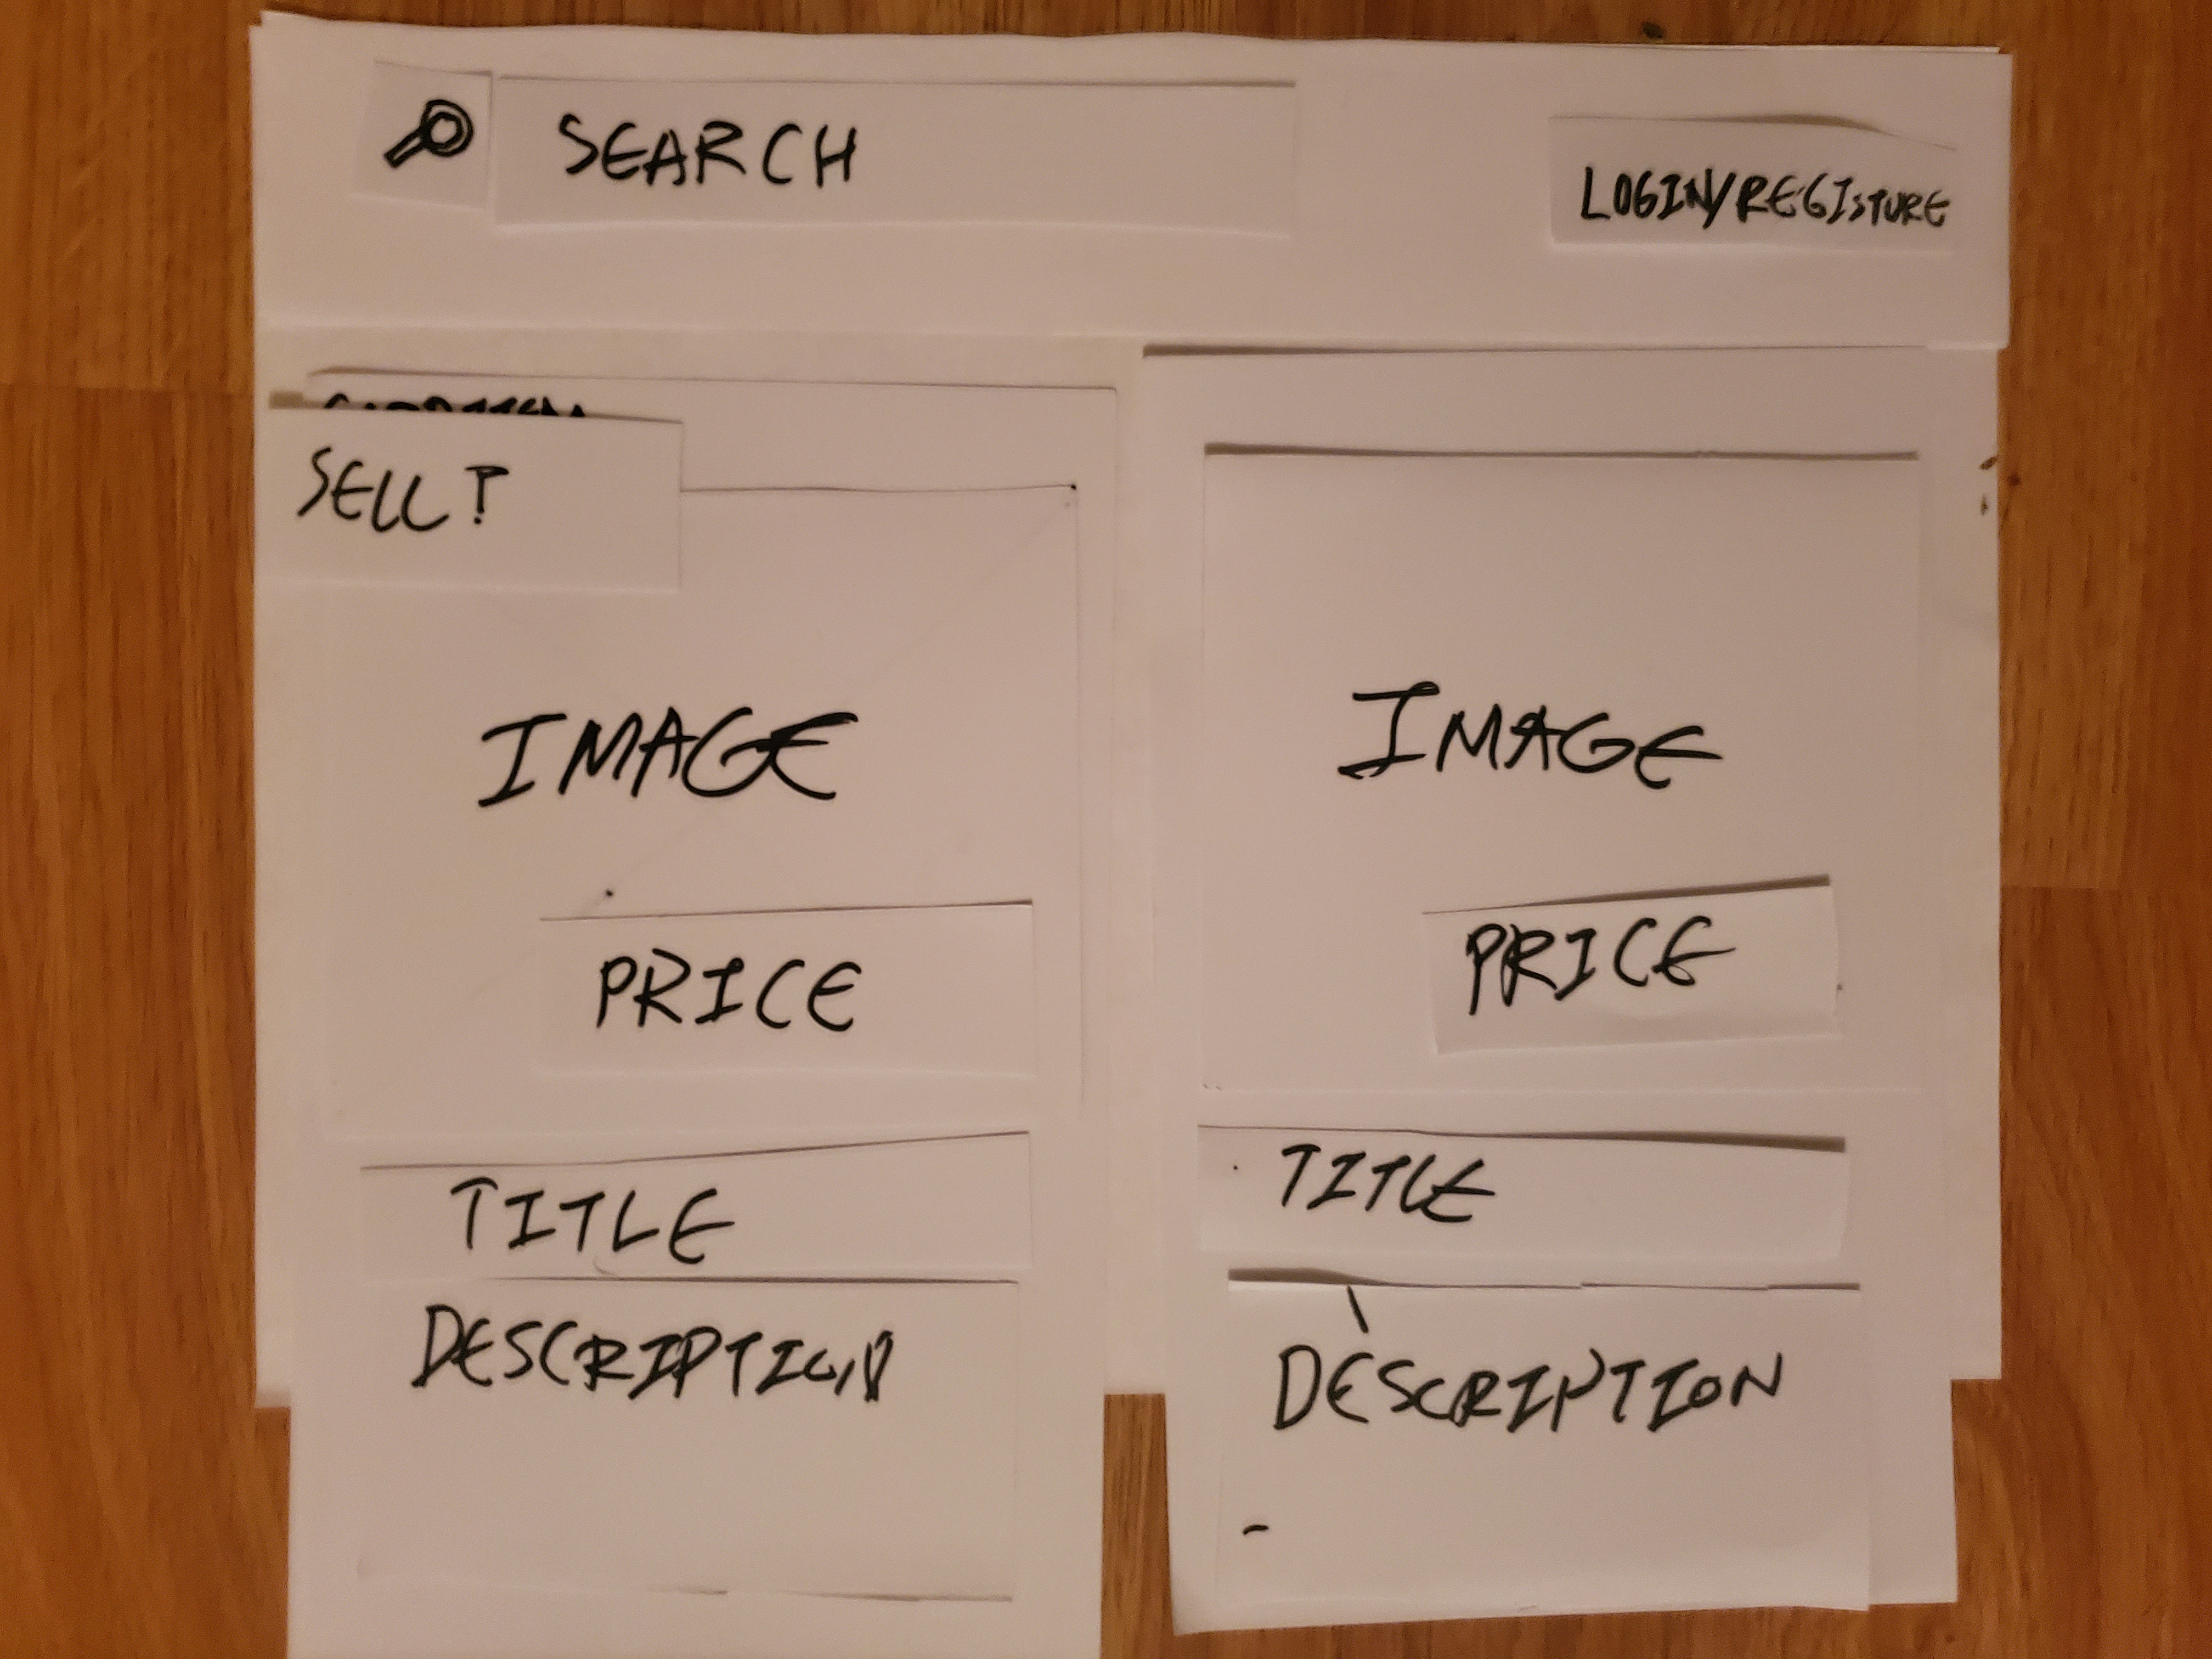 SEARCH
LOGIN/REGISTURE
SELL?
IMAGE
PRICE
TITLE
DESCRIPTION
IMAGE
PRICE
TITLE
DESCRIPTION